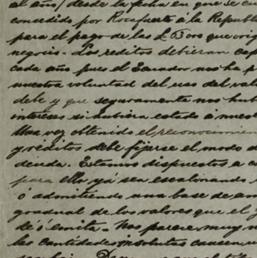 al año/ desde la fecha en que se
concedido por Rocafuerte á la Republi
para el pago de las £ que orig
negocio. Los reditos debieran cap
cada año pues el Ecuador no ha p
nuestra voluntad del uso del valor
debe y que seguramente nos hub
intereses si hubiera estado á nuest
Una vez obtenido el reconocimien
y réditos debe fijarse el modo d
deuda. Estamos dispuestos a
para ello yá sea escalonando
ó admitiendo una base de am
gradual de los valores que el
te ó emita. Nos parece muy
las cantidades insolutas causen